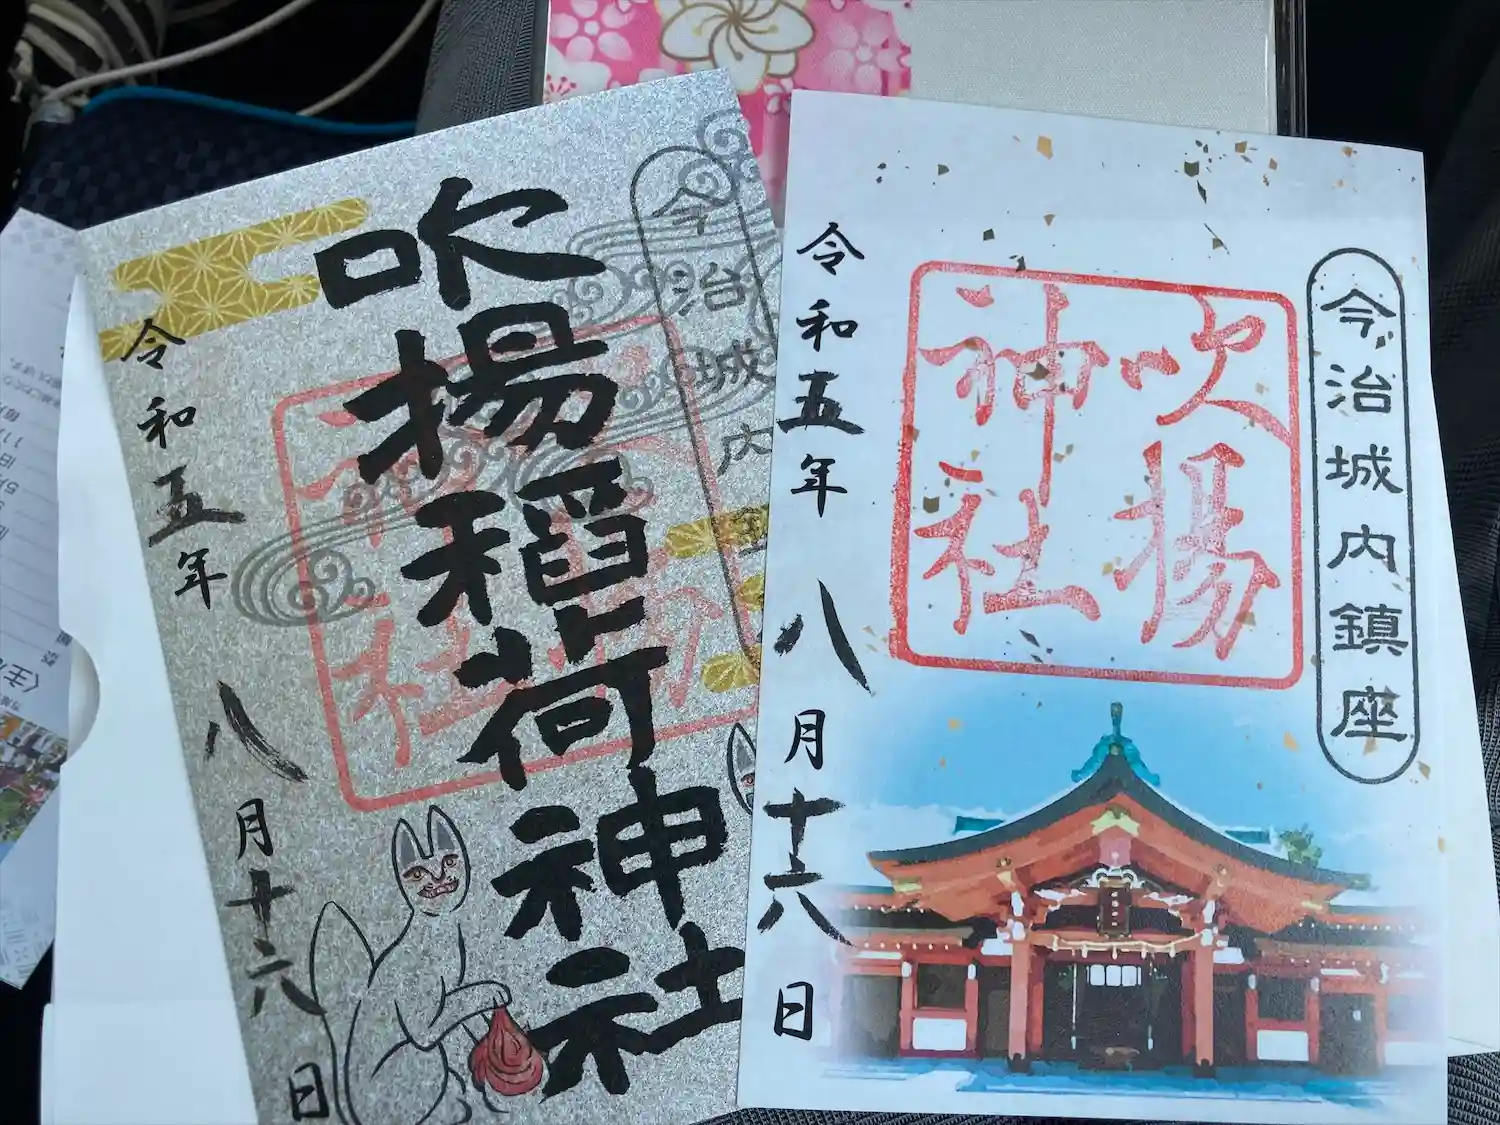 今治城内鎮座
吹揚
神社
令和五年 八月十六日
今治城内
吹揚稲荷神社
令和五年 八月十六日